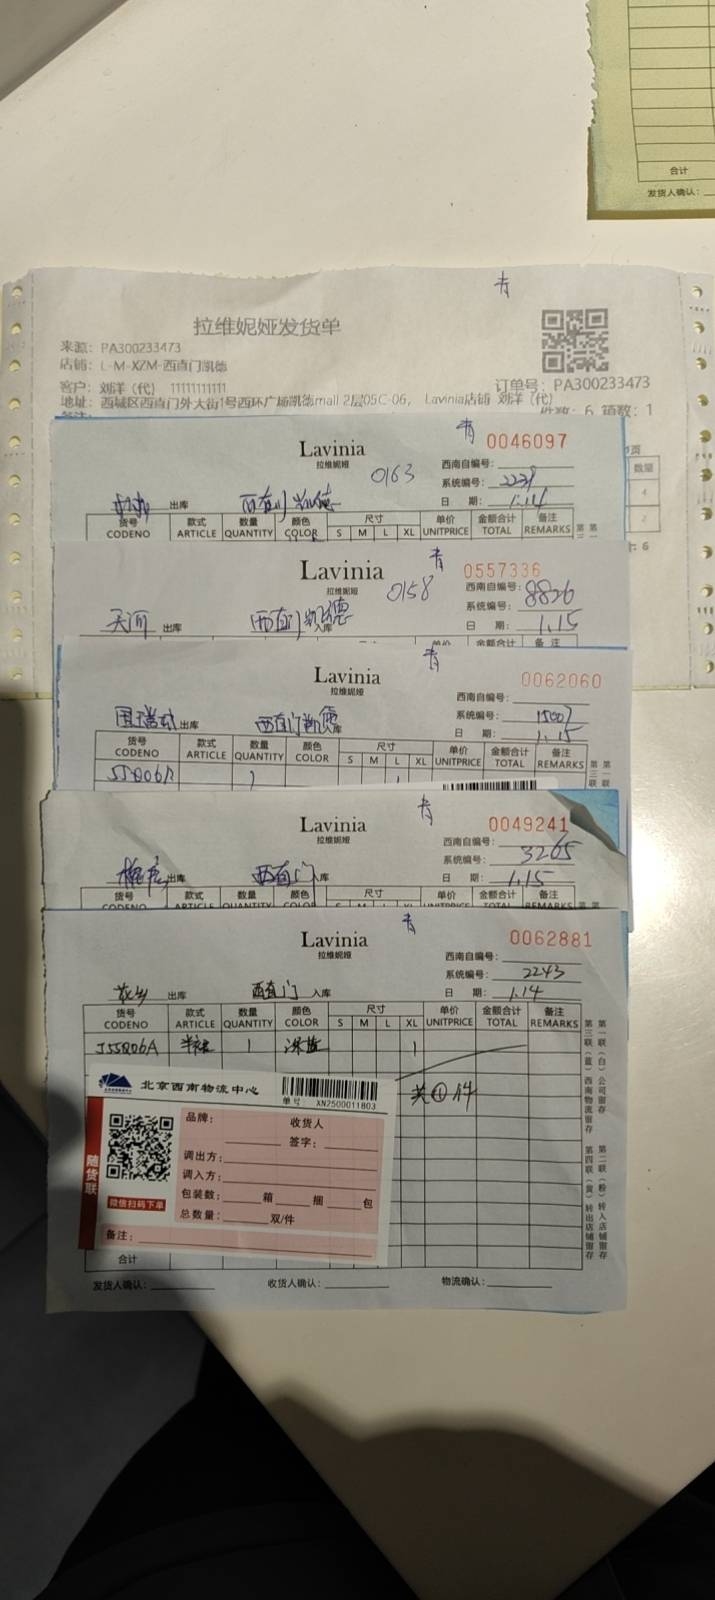 合计
发货人确认：
青
拉维妮娅发货单
来源：PA300233473
店铺：L-M-XZM-西直门凯德
客户：刘洋（代） 11111111111
订单号：PA300233473
地址：西城区西直门外大街1号西环广场凯德mall 2层05C-06， Lavinia店铺 刘洋（代）
件数：6 箱数：1
数量
4
2
Lavinia
拉维妮娅
青 0046097
0163
西南自编号：
系统编号：2239
出库 西直门凯德
日 期：1.14
货号 款式 数量 颜色 尺寸 单价 金额合计 备注
CODENO ARTICLE QUANTITY COLOR S M L XL UNITPRICE TOTAL REMARKS
Lavinia
拉维妮娅
青 0557336
0158
西南自编号：
系统编号：8826
天河 出库 西直门凯德 入库
日 期：1.15
单价 金额合计 备注
Lavinia
拉维妮娅
青 0062060
西南自编号：
系统编号：15007
出库 西直门凯德 库
日 期：1.15
货号 款式 数量 颜色 尺寸 单价 金额合计 备注
CODENO ARTICLE QUANTITY COLOR S M L XL UNITPRICE TOTAL REMARKS
J55Q06A 1 1
Lavinia
拉维妮娅
青 0049241
西南自编号：
系统编号：3265
出库 西直门 入库
日 期：1.15
货号 款式 数量 颜色 尺寸 单价 金额合计 备注
CODENO ARTICLE QUANTITY COLOR S M L XL UNITPRICE TOTAL REMARKS
Lavinia
拉维妮娅
青 0062881
西南自编号：
系统编号：2243
花乡 出库 西直门 入库
日 期：1.14
货号 款式 数量 颜色 尺寸 单价 金额合计 备注
CODENO ARTICLE QUANTITY COLOR S M L XL UNITPRICE TOTAL REMARKS
J55Q06A 1 深蓝 1
共①件
第一联（白）公司留存
第三联（蓝）西南物流留存
第二联（粉）转入店铺留存
第四联（黄）转出店铺留存
北京西南物流中心
单号：XN2500011803
随货联
微信扫码下单
品牌： 收货人
签字：
调出方：
调入方：
包装数： 箱 捆 包
总数量： 双/件
备注：
合计
发货人确认： 收货人确认： 物流确认：